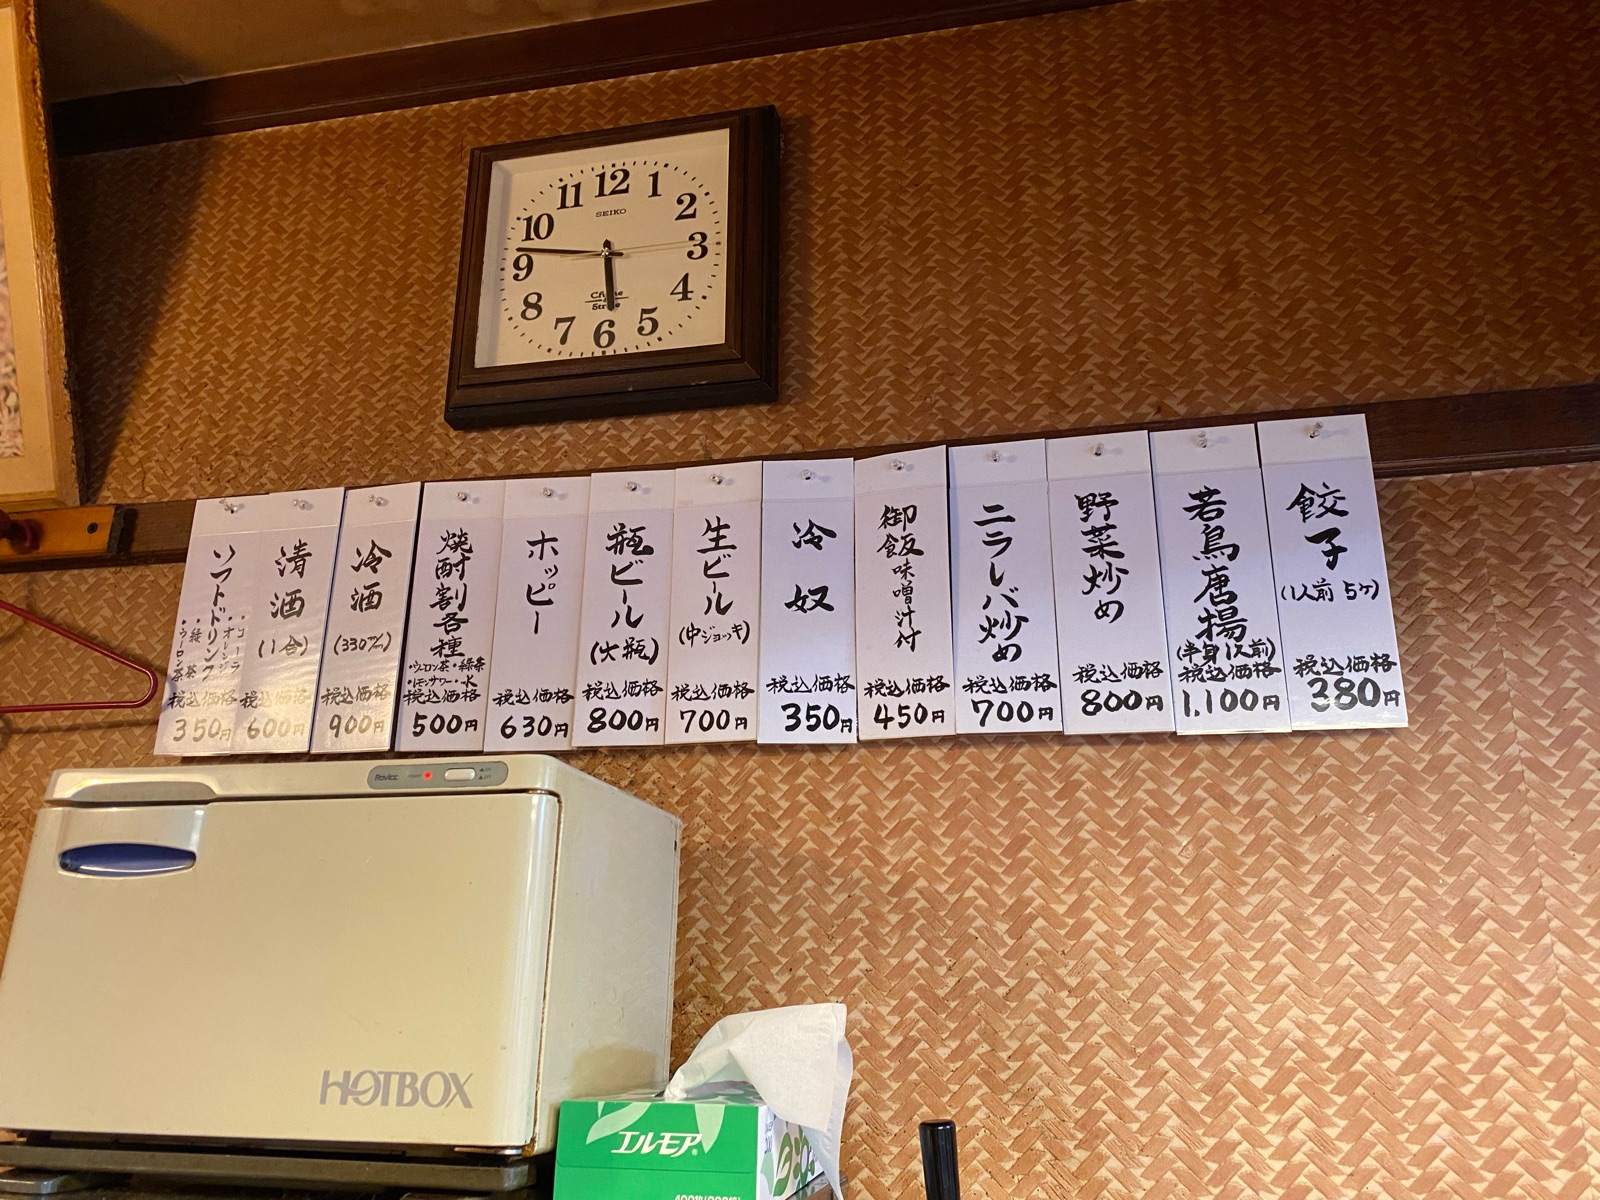 12
1
2
3
4
5
6
7
8
9
10
11
SEIKO
餃子
(1人前 5ケ)
税込価格
380円
若鳥唐揚
(半身1人前)
税込価格
1,100円
野菜炒め
税込価格
800円
ニラレバ炒め
税込価格
700円
御飯味噌汁付
税込価格
450円
冷奴
税込価格
350円
生ビール
(中ジョッキ)
税込価格
700円
瓶ビール
(大瓶)
税込価格
800円
ホッピー
税込価格
630円
焼酎割各種
・ウーロン茶・緑茶
・レモンサワー・水
税込価格
500円
冷酒
(330㎖)
税込価格
900円
清酒
(1合)
税込価格
600円
ソフトドリンク
・コーラ
・オレンジ
・緑茶
・ウーロン茶
税込価格
350円
HOTBOX
エルモア